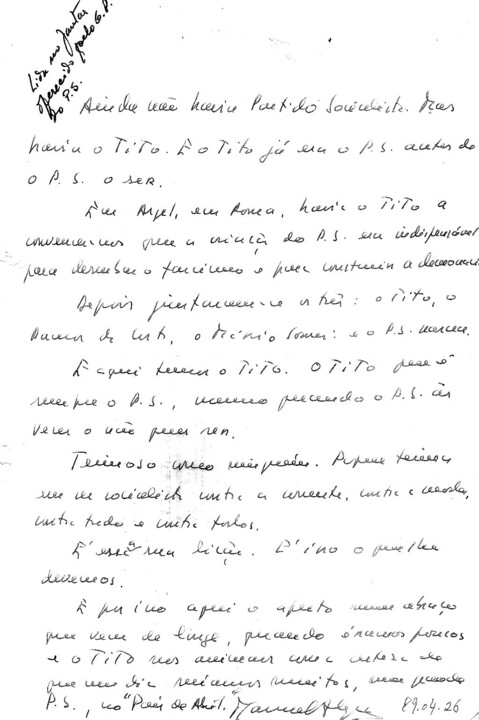 Lida no jantar
oferecido pelo G.P.
do P.S.
Ainda não havia Partido Socialista. Mas
havia o Tito. E o Tito já era o P.S. antes de
o P.S. o ser.
Em Argel, em Roma, havia o Tito a
convencer-nos que a criação do P.S. era indispensável
para derrubar o fascismo e para construir a democracia.
Depois juntaram-se os três: o Tito, o
Ramos da Costa, o Mário Soares: e o P.S. nasceu.
E aqui temos o Tito. O Tito que é
sempre o P.S., mesmo quando o P.S. às
vezes o não quer ser.
Teimoso como ninguém. Porque teimou
em ser socialista contra a corrente, contra a moda,
contra tudo e contra todos.
É essa a sua lição. É isso o que lhe
devemos.
E por isso aqui o aperto num abraço
que vem de longe, quando éramos poucos
e o Tito nos animava com a certeza de
que um dia seríamos muitos, num grande
P.S., no "País de Abril." Manuel Alegre 89.04.26